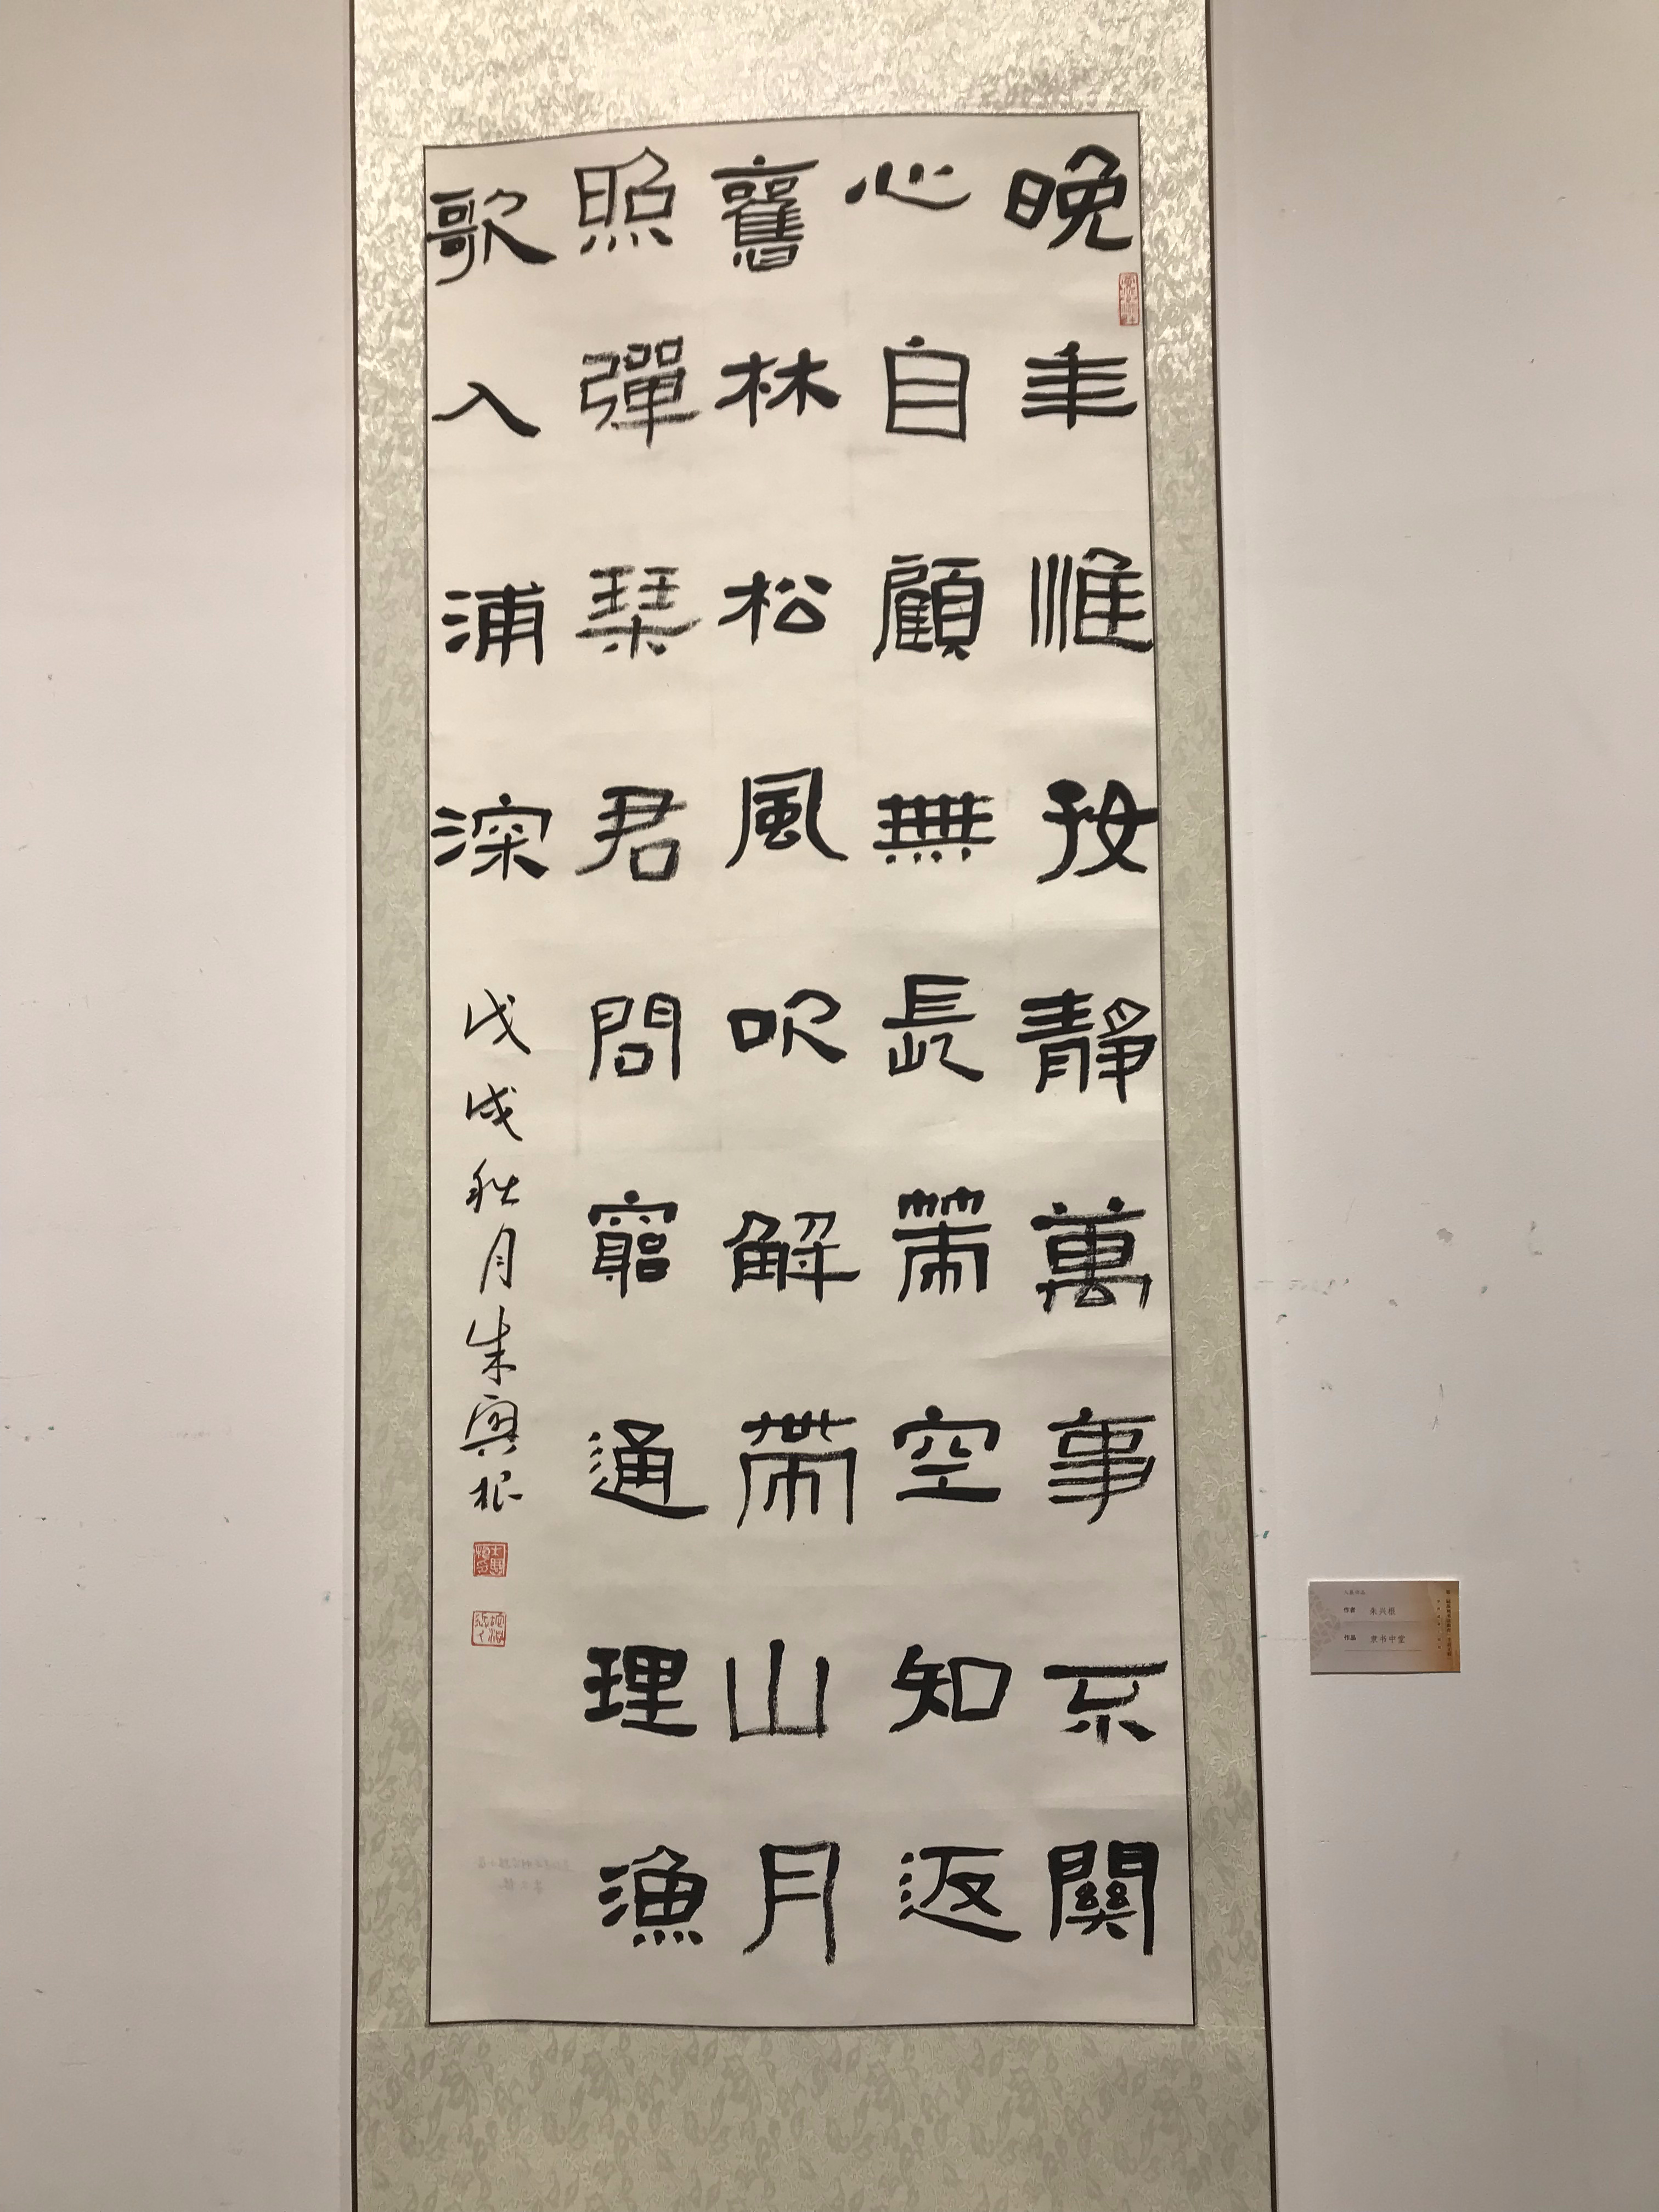 晚年惟好靜萬事不關
心自顧無長策空知返
舊林松風吹解帶山月
照彈琴君問窮通理漁
歌入浦深
戊戌秋月朱興根
作者 朱兴根
作品 隶书中堂